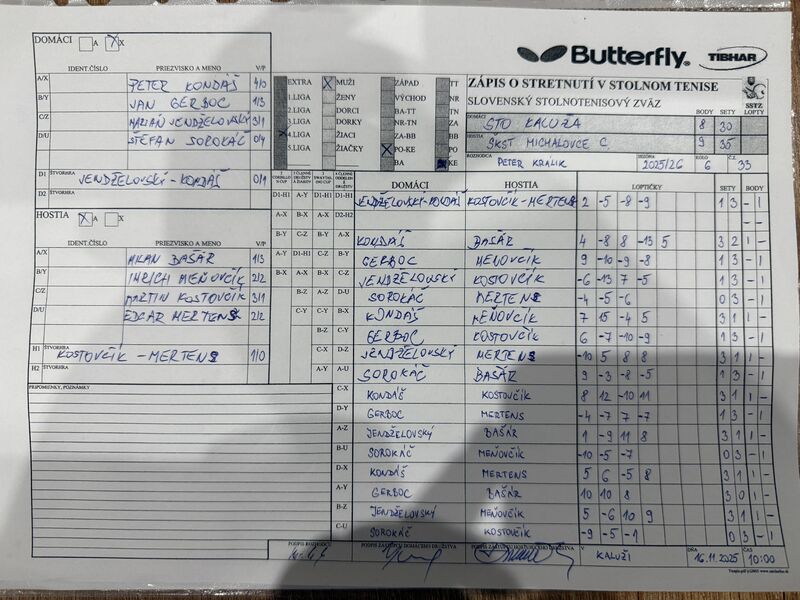 DOMÁCI A X
Butterfly. TIBHAR
IDENT.ČÍSLO PRIEZVISKO A MENO V/P
A/X PETER KONDÁŠ 4/0
B/Y JAN GERBOC 1/3
C/Z MARIÁN JENDŽELOVSKÝ 3/1
D/U ŠTEFAN SOROKÁČ 0/4
D1 ŠTVORHRA JENDŽELOVSKÝ - KONDÁŠ 0/1
D2 ŠTVORHRA
HOSTIA A X
IDENT.ČÍSLO PRIEZVISKO A MENO V/P
A/X MILAN BAŠÁR 1/3
B/Y IMRICH MEŇOVČÍK 2/2
C/Z MARTIN KOSTOVČÍK 3/1
D/U EDGAR MERTENS 2/2
H1 ŠTVORHRA KOSTOVČÍK - MERTENS 1/0
H2 ŠTVORHRA
PRIPOMIENKY, POZNÁMKY
EXTRA MUŽI ZÁPAD TT
1.LIGA ŽENY VÝCHOD NR
2.LIGA DORCI BA-TT TN
3.LIGA DORKY NR-TN ZA
4.LIGA ŽIACI ZA-BB BB
5.LIGA ŽIAČKY PO-KE PO
BA KE
ZÁPIS O STRETNUTÍ V STOLNOM TENISE
SLOVENSKÝ STOLNOTENISOVÝ ZVÄZ
SSTZ
BODY SETY LOPTY
DOMÁCI STO KALUŽA 8 30
HOSTIA ŠKST MICHALOVCE C 9 35
ROZHODCA PETER KRÁLIK SEZÓNA 2025/26 KOLO 6 Č.Z. 33
DOMÁCI HOSTIA LOPTIČKY SETY BODY
D1-H1 A-Y D1-H1 D1-H1 JENDŽELOVSKÝ-KONDÁŠ KOSTOVČÍK-MERTENS 2 -5 -8 -9 1 3 - 1
A-X B-X A-X D2-H2 - -
B-Y C-Z B-Y A-X KONDÁŠ BAŠÁR 4 -8 8 -13 5 3 2 1 -
A-Y D1-H1 C-Z B-Y GERBOC MEŇOVČÍK 9 -10 -9 -8 1 3 - 1
B-X A-X B-X C-Z JENDŽELOVSKÝ KOSTOVČÍK -6 -13 7 -5 1 3 - 1
B-Z A-Z D-U SOROKÁČ MERTENS -4 -5 -6 0 3 - 1
C-Y C-Y A-Y KONDÁŠ MEŇOVČÍK 7 15 -4 5 3 1 1 -
B-Z GERBOC KOSTOVČÍK 6 -7 -10 -9 1 3 - 1
C-X D-Z C-U JENDŽELOVSKÝ MERTENS -10 5 8 8 3 1 1 -
A-Y SOROKÁČ BAŠÁR 9 -3 -8 -5 1 3 - 1
C-X KONDÁŠ KOSTOVČÍK 8 12 -10 11 3 1 1 -
D-Y GERBOC MERTENS -4 -7 7 -7 1 3 - 1
A-Z JENDŽELOVSKÝ BAŠÁR 1 -9 11 8 3 1 1 -
B-U SOROKÁČ MEŇOVČÍK -10 -5 -7 0 3 - 1
D-X KONDÁŠ MERTENS 5 6 -5 8 3 1 1 -
A-Y GERBOC BAŠÁR 10 10 8 3 0 1 -
B-Z JENDŽELOVSKÝ MEŇOVČÍK 5 -6 10 9 3 1 1 -
C-U SOROKÁČ KOSTOVČÍK -9 -5 -1 0 3 - 1
PODPIS ROZHODCU PODPIS ZÁSTUPCU DOMÁCEHO DRUŽSTVA PODPIS ZÁSTUPCU HOSŤUJÚCEHO DRUŽSTVA V KALUŽI DŇA 16.11.2025 ČAS 10:00